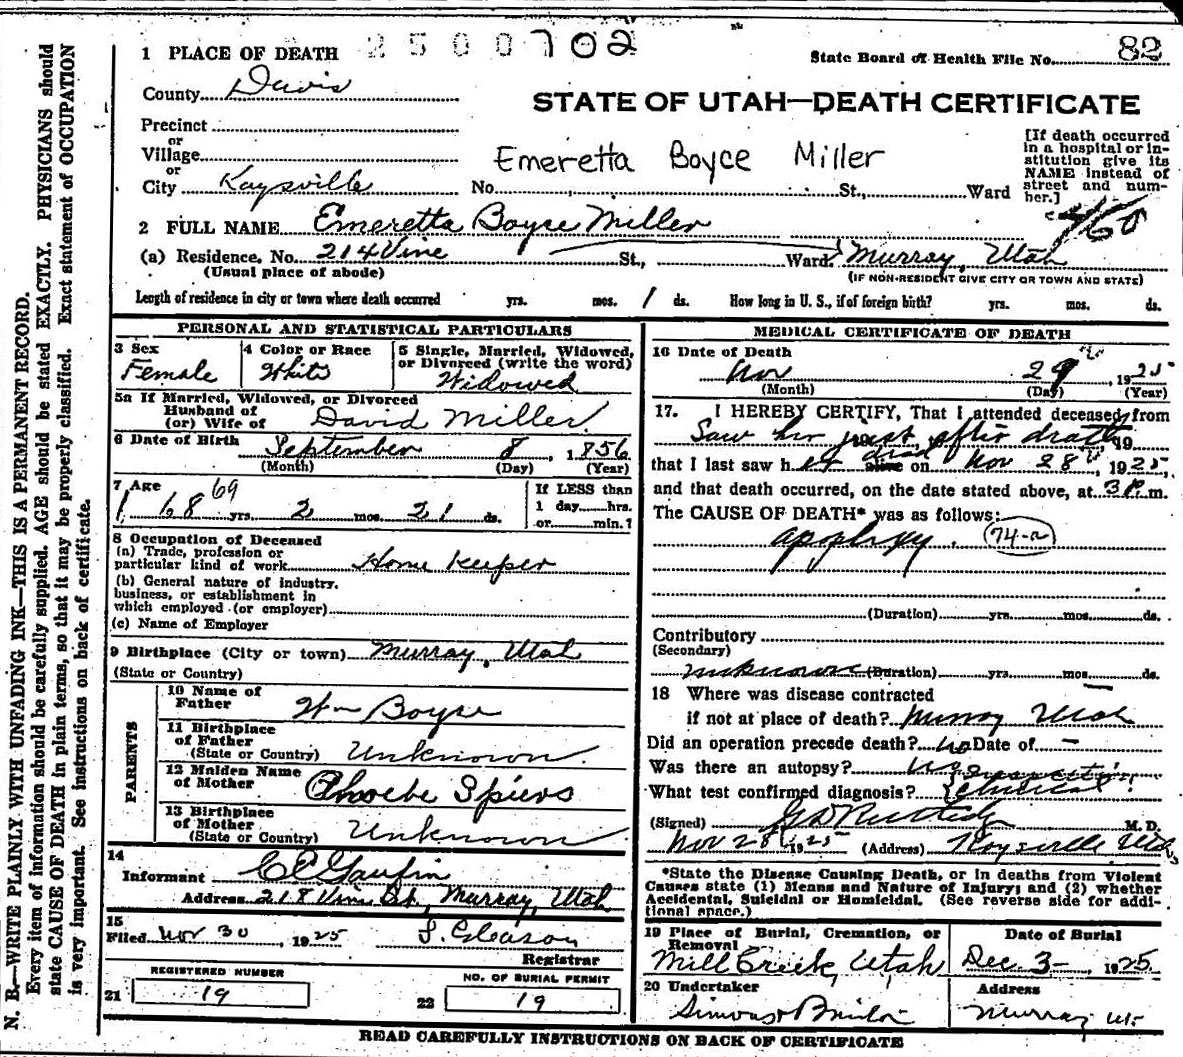 2500702
1 PLACE OF DEATH
State Board of Health File No. 82
County Davis
STATE OF UTAH—DEATH CERTIFICATE
Precinct
or
Village
or
City Kaysville
Emeretta Boyce Miller
No. St., Ward
[If death occurred in a hospital or institution give its NAME instead of street and number.]
460
2 FULL NAME Emeretta Boyce Miller
(a) Residence. No. 214 Vine St., Ward. Murray, Utah
(Usual place of abode)
(IF NON-RESIDENT GIVE CITY OR TOWN AND STATE)
Length of residence in city or town where death occurred yrs. mos. 1 ds. How long in U. S., if of foreign birth? yrs. mos. ds.
PERSONAL AND STATISTICAL PARTICULARS
3 Sex
Female
4 Color or Race
White
5 Single, Married, Widowed, or Divorced (write the word)
Widowed
5a If Married, Widowed, or Divorced
Husband of
(or) Wife of David Miller
6 Date of Birth September 8, 1856
(Month) (Day) (Year)
7 Age
68 69 yrs. 2 mos. 21 ds.
If LESS than
1 day......hrs.
or......min.?
8 Occupation of Deceased
(a) Trade, profession or
particular kind of work Home Keeper
(b) General nature of industry,
business, or establishment in
which employed (or employer)
(c) Name of Employer
9 Birthplace (City or town) Murray, Utah
(State or Country)
PARENTS
10 Name of
Father Wm Boyce
11 Birthplace
of Father
(State or Country) Unknown
12 Maiden Name
of Mother Phoebe Spiers
13 Birthplace
of Mother
(State or Country) Unknown
14
Informant C E Gaufin
Address 218 Vine St, Murray, Utah
15
Filed Nov 30, 1925 J. Gleason
Registrar
REGISTERED NUMBER
21 19
NO. OF BURIAL PERMIT
22 19
MEDICAL CERTIFICATE OF DEATH
16 Date of Death
Nov 29, 1925
(Month) (Day) (Year)
17. I HEREBY CERTIFY, That I attended deceased from
Saw her just after death, 19
that I last saw her alive dead on Nov 28, 1925,
and that death occurred, on the date stated above, at 3 P. m.
The CAUSE OF DEATH* was as follows:
apoplexy. 74-a
(Duration) yrs. mos. ds.
Contributory
(Secondary)
unknown (Duration) yrs. mos. ds.
18 Where was disease contracted
if not at place of death? Murray Utah
Did an operation precede death? no Date of —
Was there an autopsy? no
What test confirmed diagnosis? clinical
(Signed) M. D.
Nov 28 1925 (Address) Kaysville Utah
*State the Disease Causing Death, or in deaths from Violent
Causes state (1) Means and Nature of Injury; and (2) whether
Accidental, Suicidal or Homicidal. (See reverse side for addi-
tional space.)
19 Place of Burial, Cremation, or
Removal
Mill Creek, Utah
Date of Burial
Dec 3- 1925
20 Undertaker
Address
Murray Ut.
READ CAREFULLY INSTRUCTIONS ON BACK OF CERTIFICATE
N. B.—WRITE PLAINLY WITH UNFADING INK—THIS IS A PERMANENT RECORD.
Every item of information should be carefully supplied. AGE should be stated EXACTLY. PHYSICIANS should
state CAUSE OF DEATH in plain terms, so that it may be properly classified. Exact statement of OCCUPATION
is very important. See instructions on back of certificate.